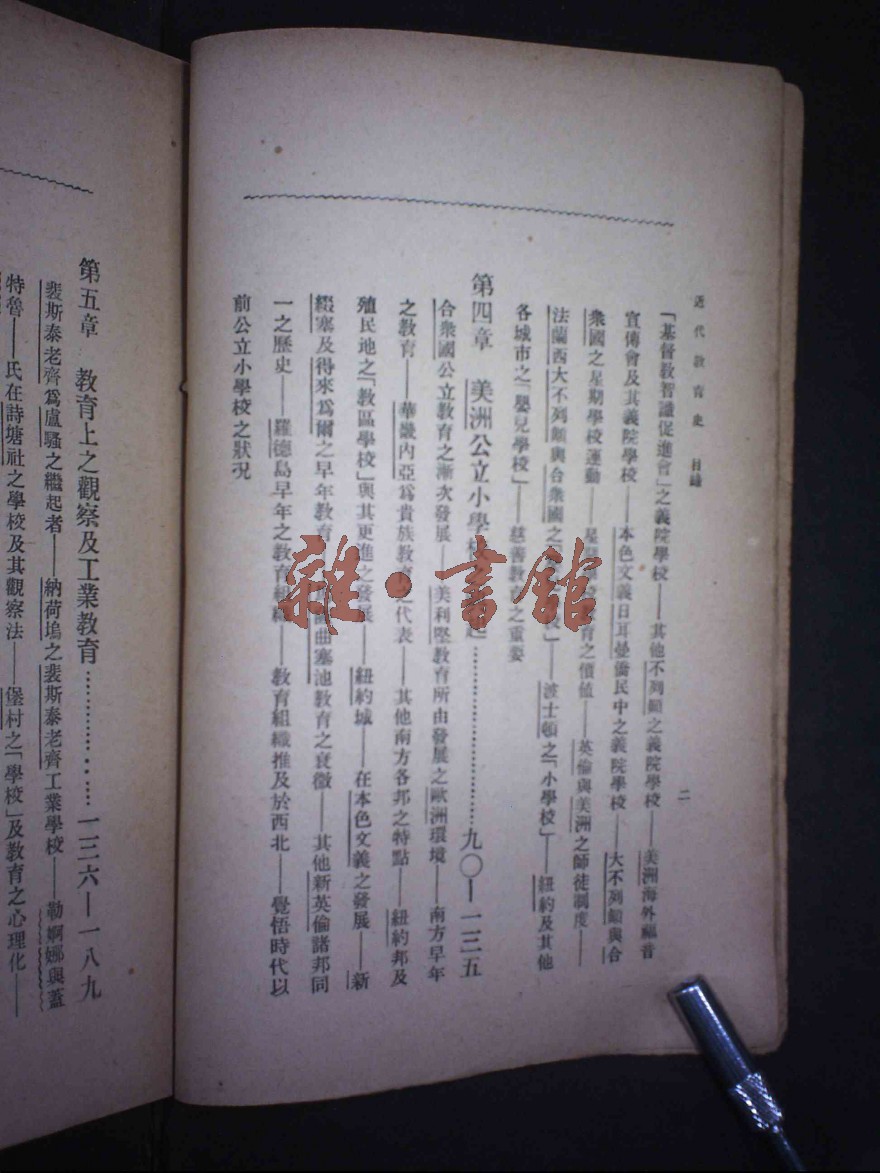 近代教育史　目錄
二
「基督教智識促進會」之義院學校——其他不列顛之義院學校——美洲海外福音
宣傳會及其義院學校——本色文義日耳曼僑民中之義院學校——大不列顛與合
衆國之星期學校運動——星期學校教育之價値——英倫與美洲之師徒制度——
法蘭西大不列顛與合衆國之校」——波士頓之「小學校」——紐約及其他
各城市之「嬰兒學校」——慈善教育之重要
第四章　美洲公立小學校起……九〇—一三五
合衆國公立教育之漸次發展——美利堅教育所由發展之歐洲環境——南方早年
之教育——華磯內亞爲貴族教育之代表——其他南方各邦之特點——紐約邦及
殖民地之「教區學校」與其更進之發展——紐約城——在本色文義之發展——新
綴塞及得來爲爾之早年教育曲塞池教育之衰微——其他新英倫諸邦同
一之歷史——羅德島早年之教育組織——教育組織推及於西北——覺悟時代以
前公立小學校之狀況
第五章　教育上之觀察及工業教育……一三六—一八九
裴斯泰老齊爲盧騷之繼起者——納荷塢之裴斯泰老齊工業學校——勒婀娜與蓋
特魯——氏在詩塘社之學校及其觀察法——堡村之「學校」及教育之心理化——
雜·書館